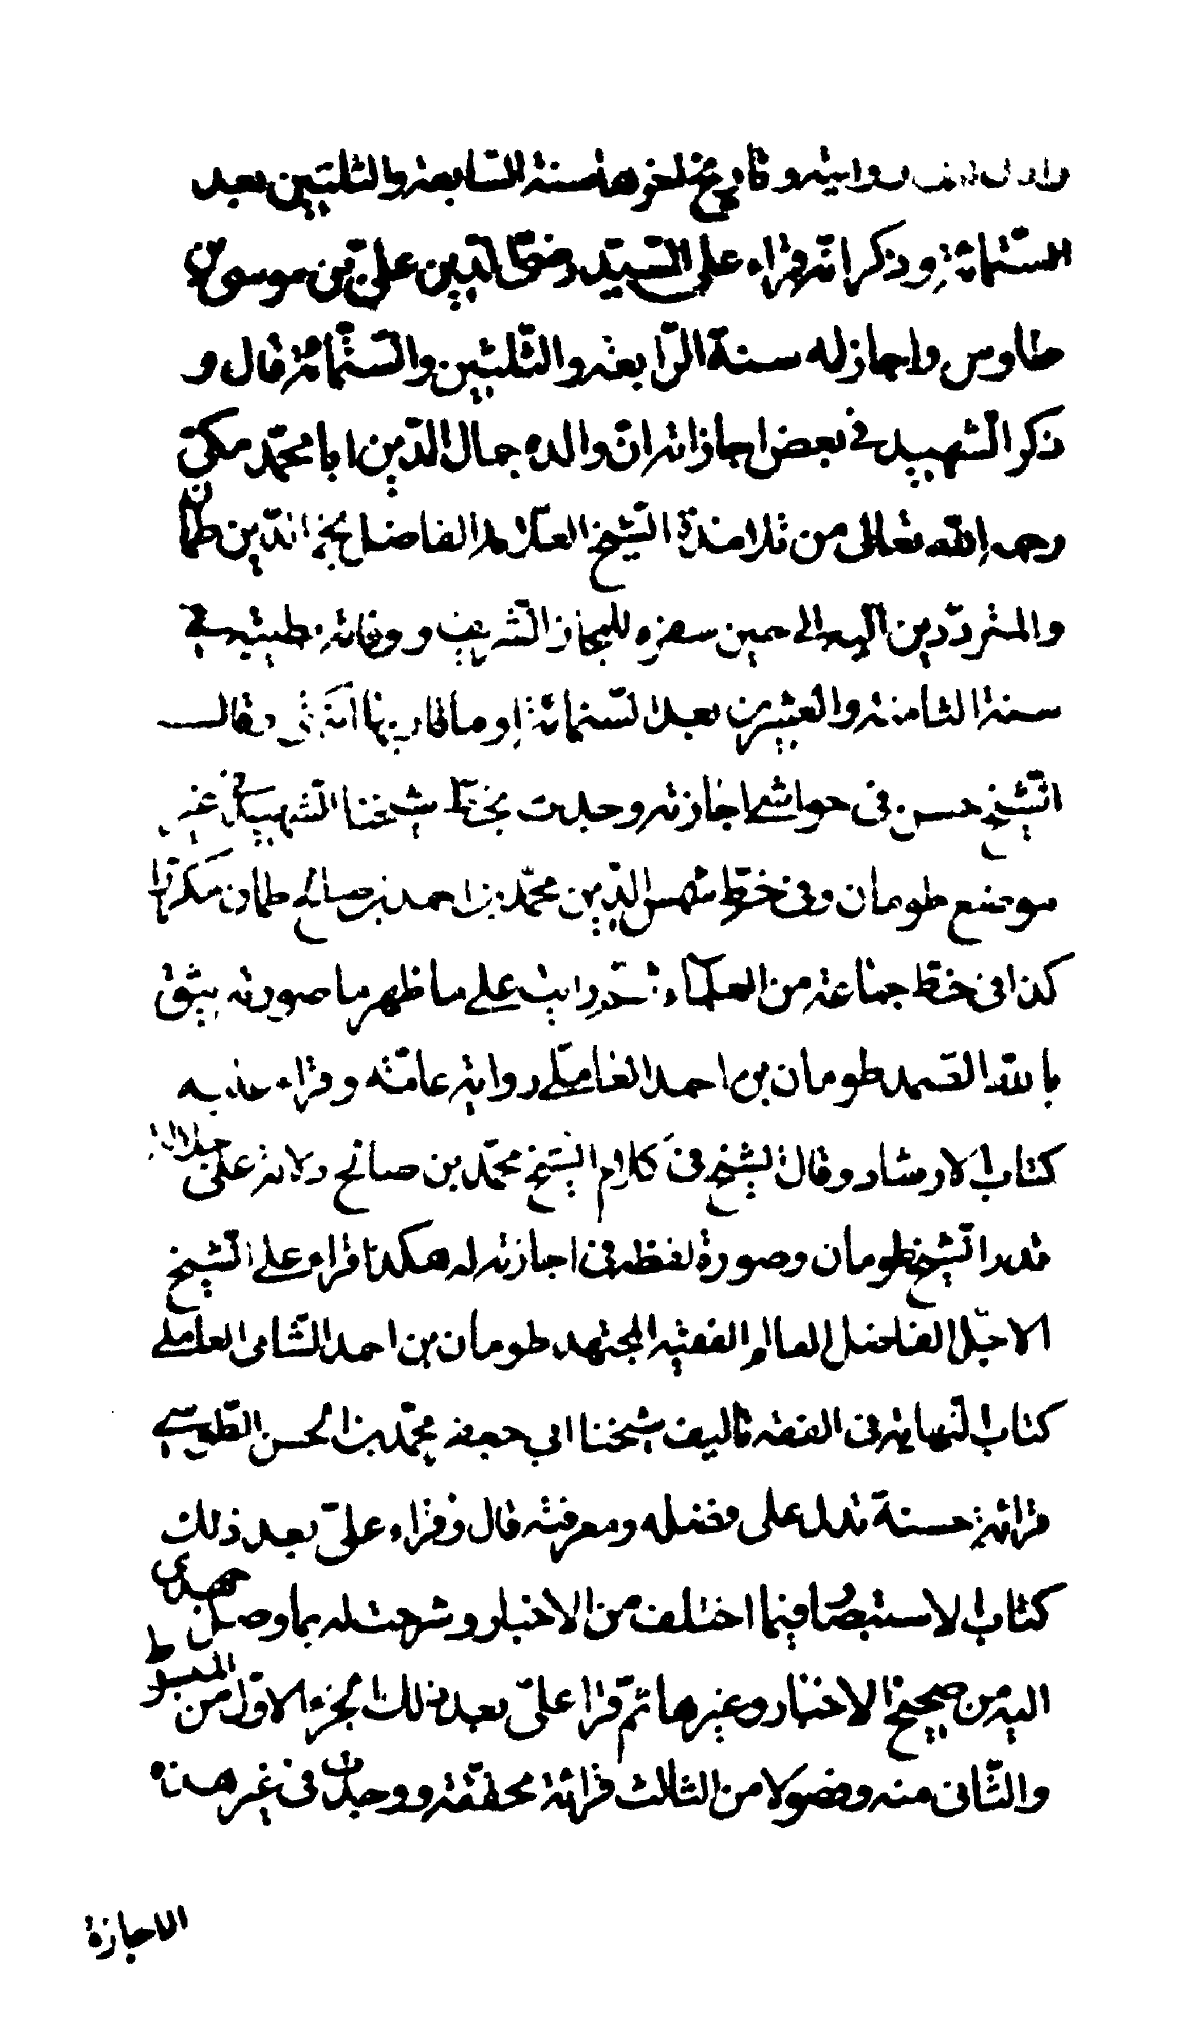 روايته وتاريخ اخرها سنة السابعة والثلثين بعد
الستمائة وذكر انه قراء على السيد رضى الدين على بن موسى بن
طاوس واجاز له سنة الرابعة والثلثين والستمائة قال و
ذكر الشهيد في بعض اجازاته ان والده جمال الدين ابا محمد مكى
رحمه الله تعالى من تلامذة الشيخ العلامه الفاضل نجم الدين طمان
والمترددين اليه الى حين سفره للحجاز الشريف ووفاته بطيبة في
سنة الثامنة والعشرين بعد الستمائة او ما قاربها وقال
الشيخ حسن في حواشى اجازته وجدت بخط شيخنا الشهيد في غير
موضع طومان وفى خط شمس الدين محمد بن احمد بن صالح طمان مكررا
كذا في خط جماعة من العلماء ثم رايت على ما ظهر ما صورته يثق
بالله الصمد طومان بن احمد العاملى رواية عامة وقراء عليه
كتاب الارشاد وقال الشيخ في كلام الشيخ محمد بن صالح دلالة على جلالة
قدر الشيخ طومان وصورة لفظه في اجازته له هكذا قراء على الشيخ
الاجل الفاضل العالم الفقيه المجتهد طومان بن احمد الشامى العاملى
كتاب النهاية في الفقه تاليف شيخنا ابى جعفر محمد بن الحسن الطوسى
قرائة حسنة تدل على فضله ومعرفته قال وقراء على بعد ذلك
كتاب الاستبصار فيما اختلف من الاخبار وشرحت له بما وصل جهدى
اليه من صحيح الاخبار وغيرها ثم قرا على بعد ذلك الجزء الاول من المبسوط
والثانى منه وفصولا من الثالث قرائة محققة ووجدت في غير هذه
الاجازة